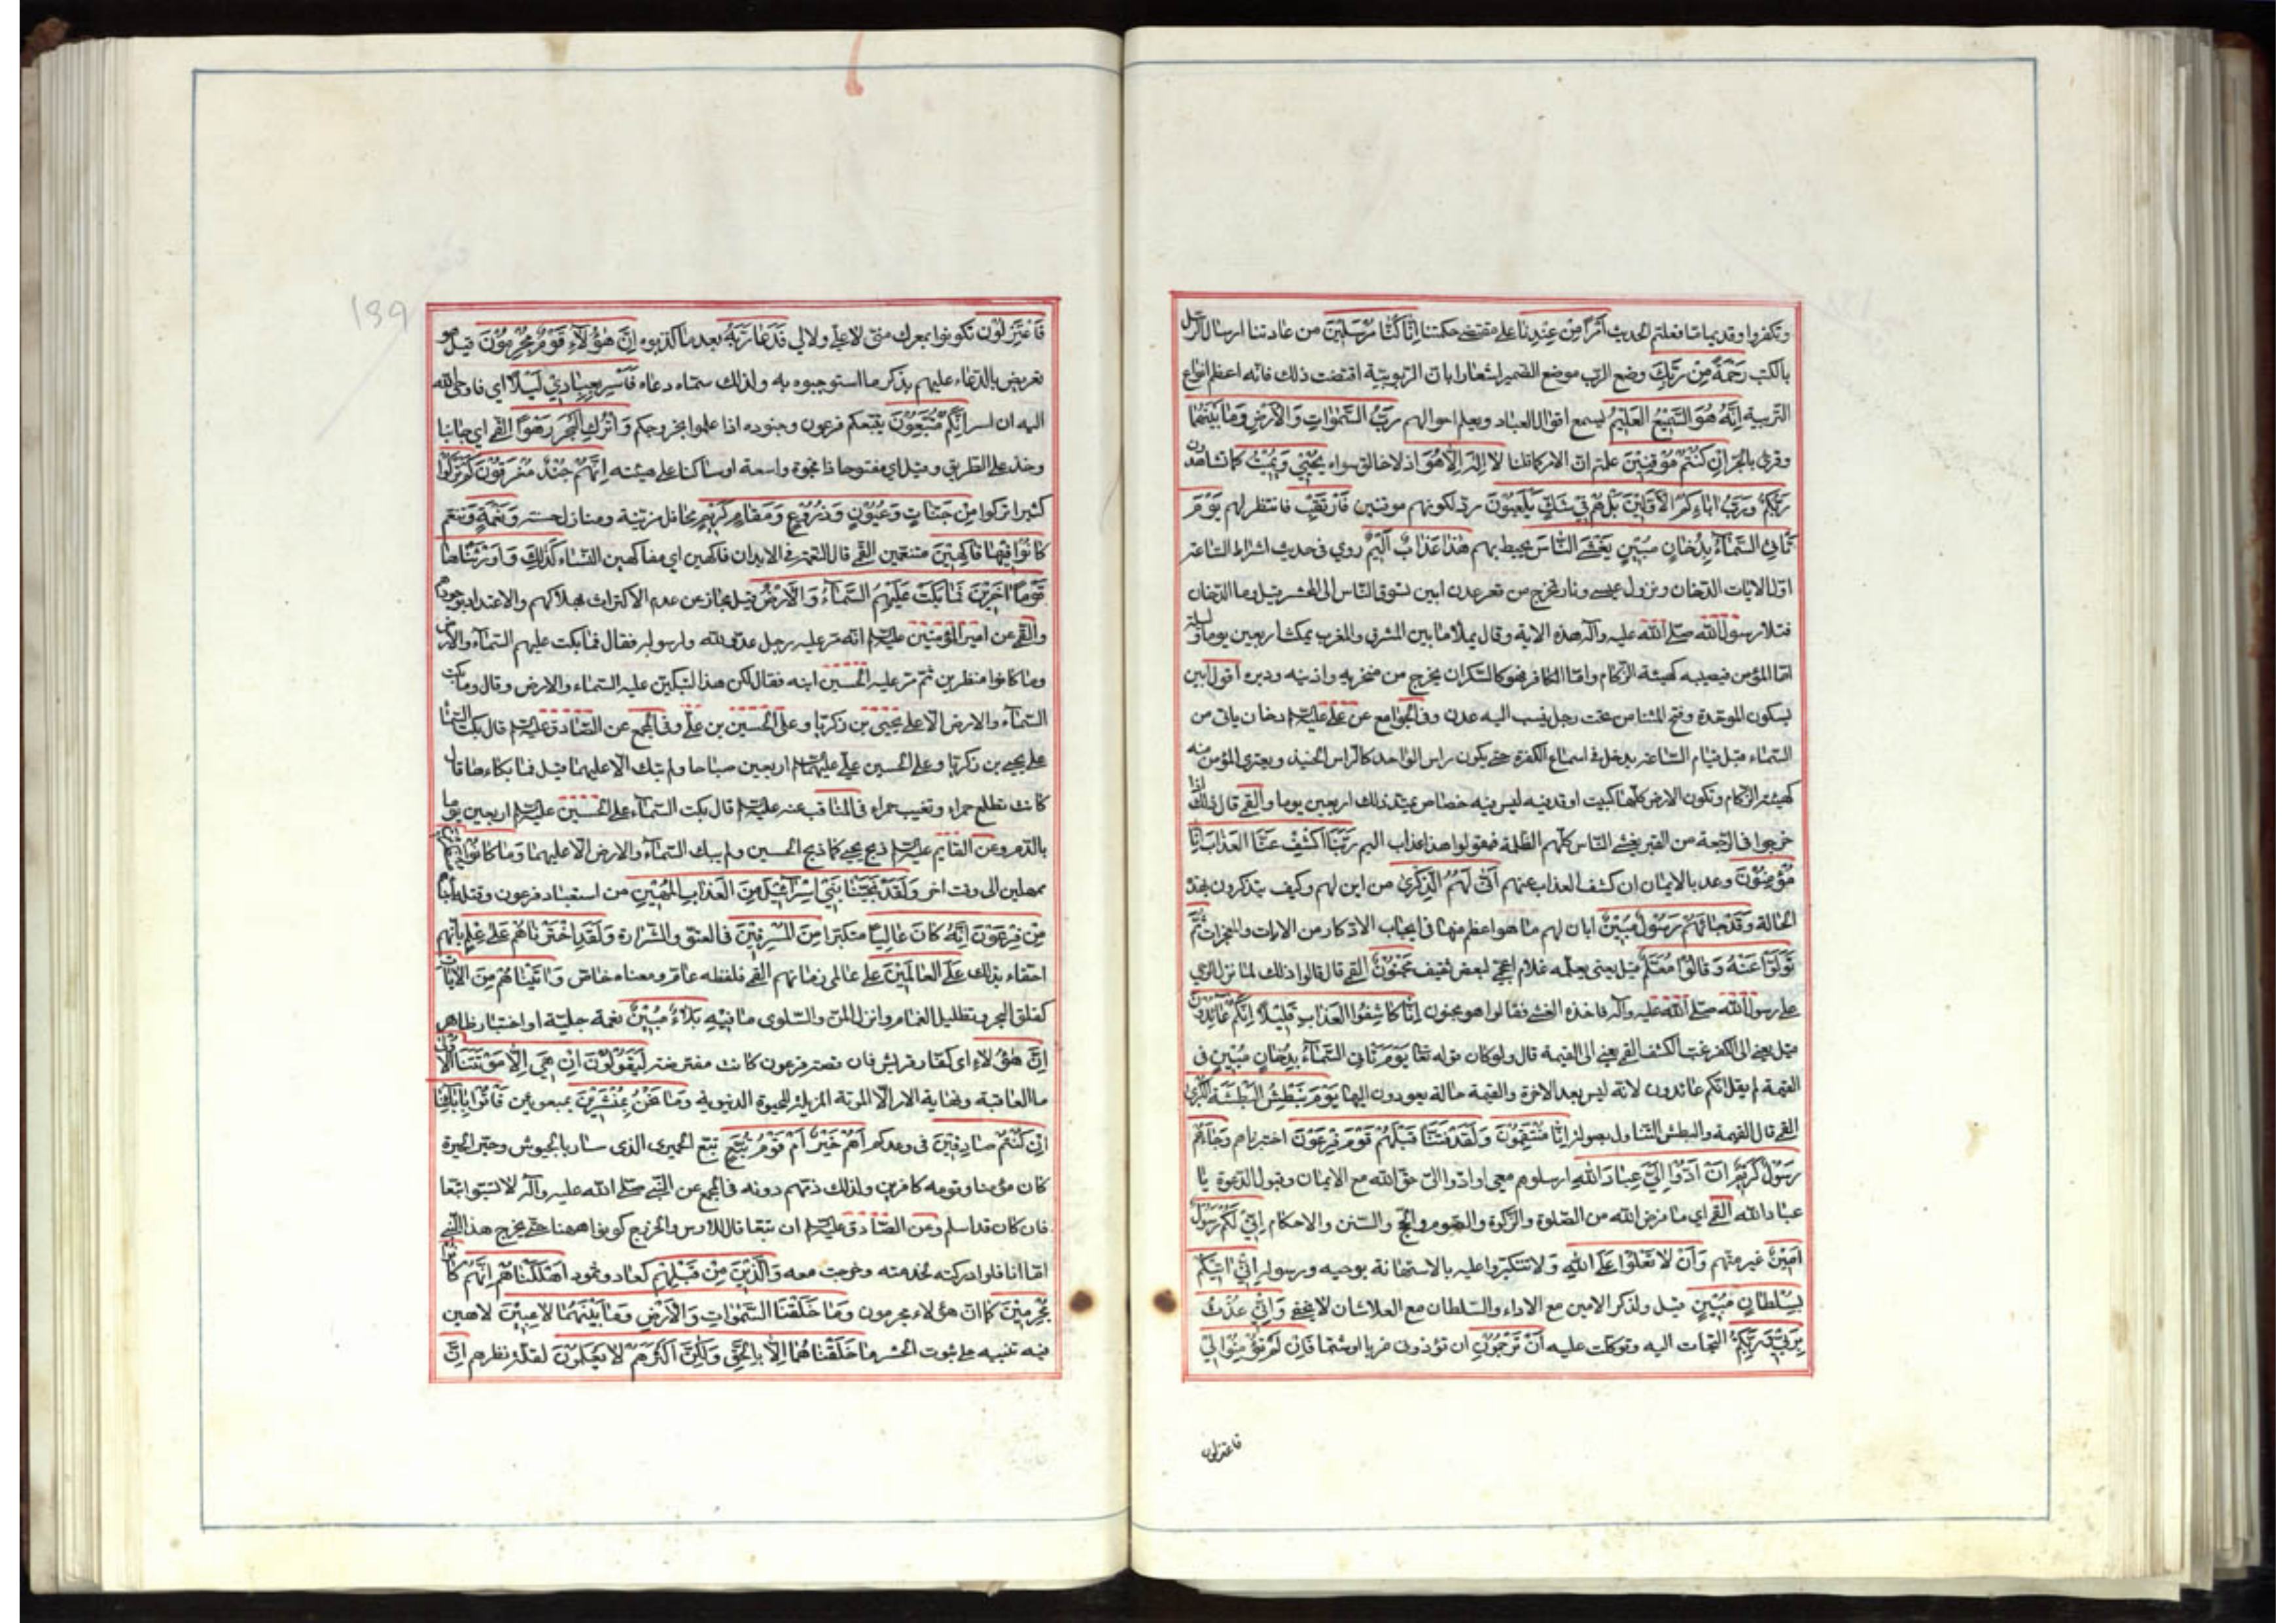 وتكفروا وقد يماما فعلتم الحديث أَمْرًا مِنْ عِنْدِنَا على مقتضى حكمتنا إِنَّا كُنَّا مُرْسِلِينَ من عادتنا ارسال الرسل
بالكتب رَحْمَةً مِنْ رَبِّكَ وضع الرب موضع الضمير اشعارا بان الربوبية اقتضت ذلك فانه اعظم انواع
التربية إِنَّهُ هُوَ السَّمِيعُ الْعَلِيمُ يسمع اقوال العباد ويعلم احوالهم رَبِّ السَّمٰوَاتِ وَالْأَرْضِ وَمَا بَيْنَهُمَا
وقرئ بالجر إِنْ كُنْتُمْ مُوقِنِينَ علمتم ان الامر كما قلنا لَا إِلٰهَ إِلَّا هُوَ اذ لا خالق سواه يُحْيِي وَيُمِيتُ كما تشاهدون
رَبُّكُمْ وَرَبُّ آبَائِكُمُ الْأَوَّلِينَ بَلْ هُمْ فِي شَكٍّ يَلْعَبُونَ رد لكونهم موقنين فَارْتَقِبْ فانتظر لهم يَوْمَ
تَأْتِي السَّمَآءُ بِدُخَانٍ مُبِينٍ يَغْشَى النَّاسَ يحيط بهم هٰذَا عَذَابٌ أَلِيمٌ روي في حديث اشراط الساعة
اول الايات الدخان ونزول عيسى ونار تخرج من قعر عدن ابين تسوق الناس الى المحشر قيل وما الدخان
فتلا رسول الله صلى الله عليه وآله هذه الاية وقال يملأ ما بين المشرق والمغرب يمكث اربعين يوما وليلة
اما المؤمن فيصيبه كهيئة الزكام واما الكافر فهو كالسكران يخرج من منخريه واذنيه ودبره أقول ابين
بسكون الموحدة وفتح المثناة من تحت رجل نسب اليه عدن وفي الجوامع عن علي عليه السلام دخان ياتي من
السماء قبل قيام الساعة يدخل في اسماع الكفرة حتى يكون راس الواحد كالراس الحنيذ ويعتري المؤمن منه
كهيئة الزكام وتكون الارض كلها كبيت اوقد فيه ليس فيه خصاص يمتد ذلك اربعين يوما والقمي قال ذلك اذا
خرجوا في الرجعة من القبر يغشى الناس كلهم الظلمة فيقولوا هذا عذاب اليم رَبَّنَا اكْشِفْ عَنَّا الْعَذَابَ إِنَّا
مُؤْمِنُونَ وعد بالايمان ان كشف العذاب عنهم أَنَّى لَهُمُ الذِّكْرٰى من اين لهم وكيف يتذكرون بهذه
الحالة وَقَدْ جَاءَهُمْ رَسُولٌ مُبِينٌ ابان لهم ما هو اعظم منها في ايجاب الادكار من الايات والمعجزات ثُمَّ
تَوَلَّوْا عَنْهُ وَقَالُوا مُعَلَّمٌ قيل يعني يعلمه غلام اعجمي لبعض ثقيف مَجْنُونٌ القمي قال قالوا ذلك لما نزل الوحي
على رسول الله صلى الله عليه وآله فاخذه الغشي فقالوا هو مجنون إِنَّا كَاشِفُوا الْعَذَابِ قَلِيلًا إِنَّكُمْ عَائِدُونَ
قيل يعني الى الكفر غب الكشف القمي يعني الى القيمة قال ولو كان قوله تعا يَوْمَ تَأْتِي السَّمَآءُ بِدُخَانٍ مُبِينٍ في
القيمة لم يقل انكم عائدون لانه ليس بعد الاخرة والقيمة حالة يعودون اليها يَوْمَ نَبْطِشُ الْبَطْشَةَ الْكُبْرٰى
القمي قال القيمة والبطش التناول بصولة إِنَّا مُنْتَقِمُونَ وَلَقَدْ فَتَنَّا قَبْلَهُمْ قَوْمَ فِرْعَوْنَ اختبرناهم وَجَاءَهُمْ
رَسُولٌ كَرِيمٌ أَنْ أَدُّوا إِلَيَّ عِبَادَ اللهِ ارسلوهم معي او ادوا الي حق الله مع الايمان وقبول الدعوة يا
عباد الله القمي اي ما فرض الله من الصلوة والزكوة والصوم والحج والسنن والاحكام إِنِّي لَكُمْ رَسُولٌ
أَمِينٌ غير متهم وَأَنْ لَا تَعْلُوا عَلَى اللهِ ولا تتكبروا عليه بالاستهانة بوحيه ورسوله إِنِّي آتِيكُمْ
بِسُلْطَانٍ مُبِينٍ قيل ولذكر الامين مع الاداء والسلطان مع العلا شان لا يخفى وَإِنِّي عُذْتُ
بِرَبِّي وَرَبِّكُمْ التجات اليه وتوكلت عليه أَنْ تَرْجُمُونِ ان تؤذوني ضربا او شتما وَإِنْ لَمْ تُؤْمِنُوا لِي
فاعتزلون
139
فَاعْتَزِلُونِ تكونوا بمعزل مني لا علي ولا لي فَدَعَا رَبَّهُ بعد ما كذبوه إِنَّ هٰؤُلَاءِ قَوْمٌ مُجْرِمُونَ قيل هو
تعريض بالدعاء عليهم بذكر ما استوجبوه به ولذلك سماه دعاء فَأَسْرِ بِعِبَادِي لَيْلًا اي فاوحى الله
اليه ان اسر إِنَّكُمْ مُتَّبَعُونَ يتبعكم فرعون وجنوده اذا علموا بخروجكم وَاتْرُكِ الْبَحْرَ رَهْوًا القمي اي جانبا
وخذ على الطريق وقيل اي مفتوحا ذا فجوة واسعة او ساكنا على هيئته إِنَّهُمْ جُنْدٌ مُغْرَقُونَ كَمْ تَرَكُوا
كثيرا تركوا مِنْ جَنَّاتٍ وَعُيُونٍ وَزُرُوعٍ وَمَقَامٍ كَرِيمٍ محافل مزينة ومنازل حسنة وَنَعْمَةٍ وتنعم
كَانُوا فِيهَا فَاكِهِينَ متنعمين القمي قال النعمة في الابدان فاكهين اي مفاكهين النساء كَذٰلِكَ وَأَوْرَثْنَاهَا
قَوْمًا آخَرِينَ فَمَا بَكَتْ عَلَيْهِمُ السَّمَآءُ وَالْأَرْضُ قيل مجاز عن عدم الاكتراث بهلاكهم والاعتداد بوجودهم
والقمي عن امير المؤمنين عليه السلام انه مر عليه رجل عدو لله ولرسوله فقال فما بكت عليهم السماء والارض
وما كانوا منظرين ثم مر عليه الحسين ابنه فقال لكن هذا لتبكين عليه السماء والارض وقال وما بكت
السماء والارض الا على يحيى بن زكريا وعلى الحسين بن علي وفي المجمع عن الصادق عليه السلام قال بكت السماء
على يحيى بن زكريا وعلى الحسين بن علي عليهما السلام اربعين صباحا ولم تبك الا عليهما قيل فما بكاءها قال
كانت تطلع حمراء وتغيب حمراء في المناقب عنه عليه السلام قال بكت السماء على الحسين عليه السلام اربعين يوما
بالدم وعن القايم عليه السلام ذبح يحيى كما ذبح الحسين ولم يبك السماء والارض الا عليهما وَمَا كَانُوا مُنْظَرِينَ
ممهلين الى وقت اخر وَلَقَدْ نَجَّيْنَا بَنِي إِسْرَائِيلَ مِنَ الْعَذَابِ الْمُهِينِ من استعباد فرعون وقتله ابناءهم
مِنْ فِرْعَوْنَ إِنَّهُ كَانَ عَالِيًا متكبرا مِنَ الْمُسْرِفِينَ في العتو والشرارة وَلَقَدِ اخْتَرْنَاهُمْ عَلَى عِلْمٍ بانهم
احقاء بذلك عَلَى الْعَالَمِينَ على عالمي زمانهم القمي فلفظه عام ومعناه خاص وَآتَيْنَاهُمْ مِنَ الْآيَاتِ
كفلق البحر وتظليل الغمام وانزال المن والسلوى مَا فِيهِ بَلَاءٌ مُبِينٌ نعمة جلية او اختبار ظاهر
إِنَّ هٰؤُلَاءِ اي كفار قريش فان قصة فرعون كانت معترضة لَيَقُولُونَ إِنْ هِيَ إِلَّا مَوْتَتُنَا الْأُولٰى
ما العاقبة ونهاية الامر الا الموتة المزيلة للحيوة الدنيوية وَمَا نَحْنُ بِمُنْشَرِينَ بمبعوثين فَأْتُوا بِآبَائِنَا
إِنْ كُنْتُمْ صَادِقِينَ في وعدكم أَهُمْ خَيْرٌ أَمْ قَوْمُ تُبَّعٍ تبع الحميري الذي سار بالجيوش وحير الحيرة
كان مؤمنا وقومه كافرين ولذلك ذمهم دونه في المجمع عن النبي صلى الله عليه وآله لا تسبوا تبعا
فان كان قد اسلم وعن الصادق عليه السلام ان تبعا قال للاوس والخزرج كونوا ههنا حتى يخرج هذا النبي
اما انا فلو ادركته لخدمته وخرجت معه وَالَّذِينَ مِنْ قَبْلِهِمْ كعاد وثمود أَهْلَكْنَاهُمْ إِنَّهُمْ كَانُوا
مُجْرِمِينَ كما ان هؤلاء مجرمون وَمَا خَلَقْنَا السَّمٰوَاتِ وَالْأَرْضَ وَمَا بَيْنَهُمَا لَاعِبِينَ لاهين
فيه تنبيه على ثبوت الحشر مَا خَلَقْنَاهُمَا إِلَّا بِالْحَقِّ وَلٰكِنَّ أَكْثَرَهُمْ لَا يَعْلَمُونَ لقلة نظرهم إِنَّ